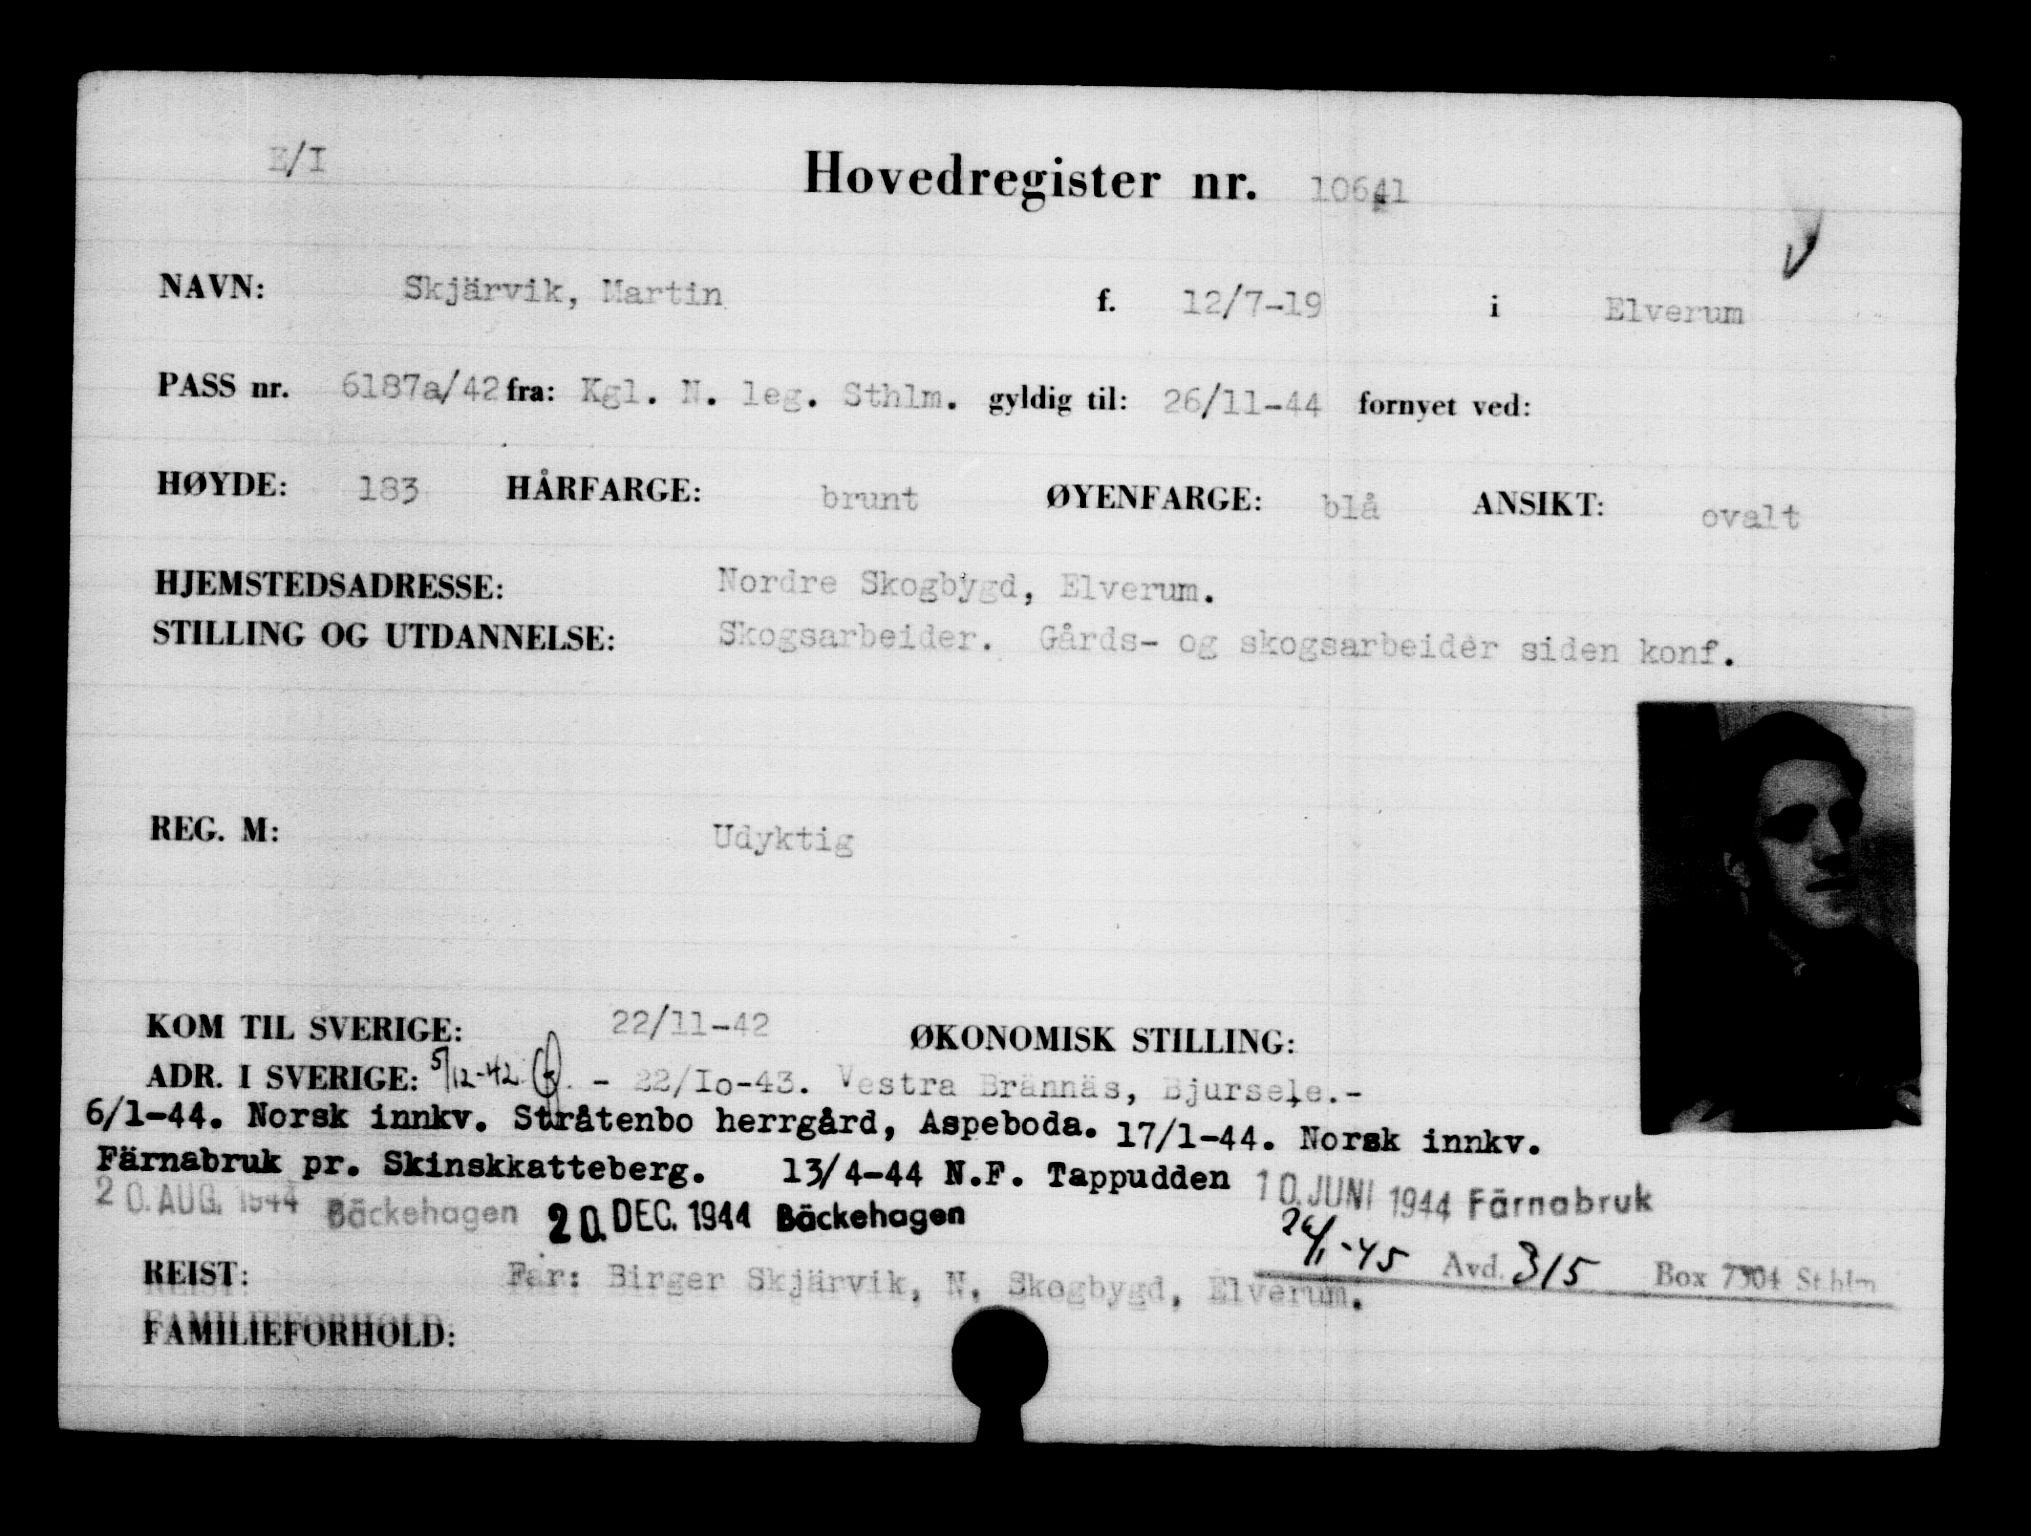 E/I
Hovedregister nr. 10641
NAVN: Skjärvik, Martin f. 12/7-19 i Elverum
PASS nr. 6187a/42 fra: Kgl. N. leg. Sthlm. gyldig til: 26/11-44 fornyet ved:
HØYDE: 183 HÅRFARGE: brunt ØYENFARGE: blå ANSIKT: ovalt
HJEMSTEDSADRESSE: Nordre Skogbygd, Elverum.
STILLING OG UTDANNELSE: Skogsarbeider. Gårds- og skogsarbeider siden konf.
REG. M: Udyktig
KOM TIL SVERIGE: 22/11-42 ØKONOMISK STILLING:
ADR. I SVERIGE: 5/12-42. - 22/Io-43. Vestra Brännäs, Bjursele.-
6/1-44. Norsk innkv. Stråtenbo herrgård, Aspeboda. 17/1-44. Norsk innkv.
Färnabruk pr. Skinskkatteberg. 13/4-44 N.F. Tappudden 10. JUNI 1944 Färnabruk
20. AUG. 1944 Bäckehagen 20. DEC. 1944 Bäckehagen
26/1-45 Avd. 315 Box 7304 Sthlm
REIST: Far: Birger Skjärvik, N. Skogbygd, Elverum.
FAMILIEFORHOLD: